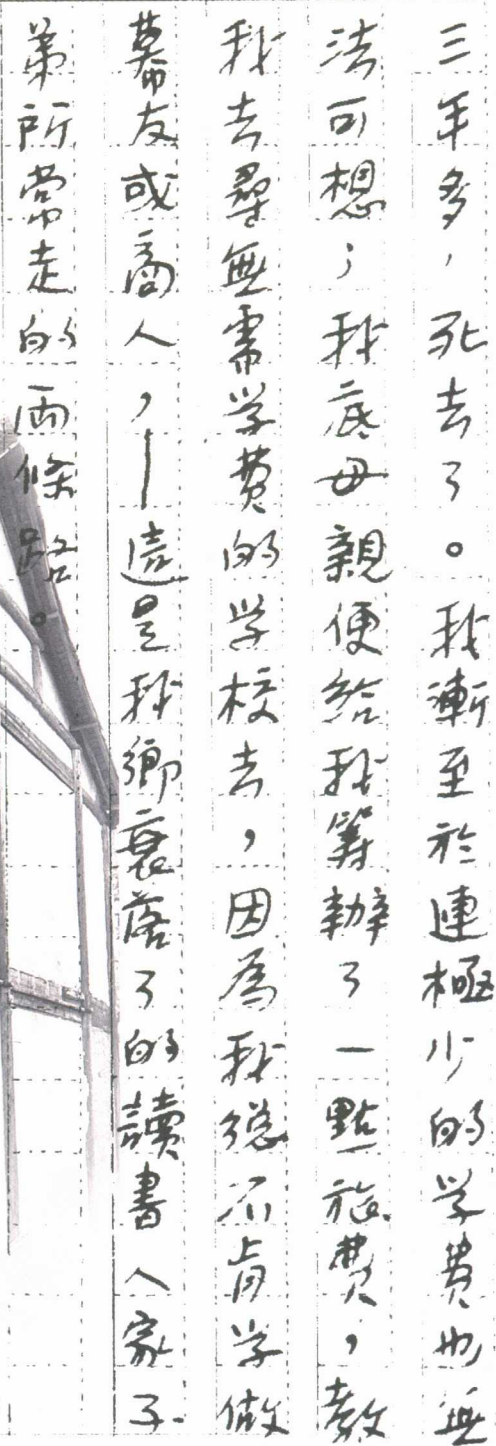 三年多，死去了。我漸至於連極少的学費也無
法可想；我底母親便給我籌辦了一點旅費，教
我去尋無需学費的学校去，因為我總不肯学做
幕友或商人，—這是我鄉衰落了的讀書人家子
弟所常走的兩條路。